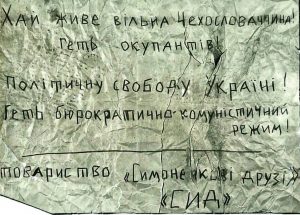 Хай живе вільна Чехословаччина!
Геть окупантів!
Політичну свободу Україні!
Геть бюрократично-комуністичний
режим!
товариство «Симоненкові друзі»
«СИД»